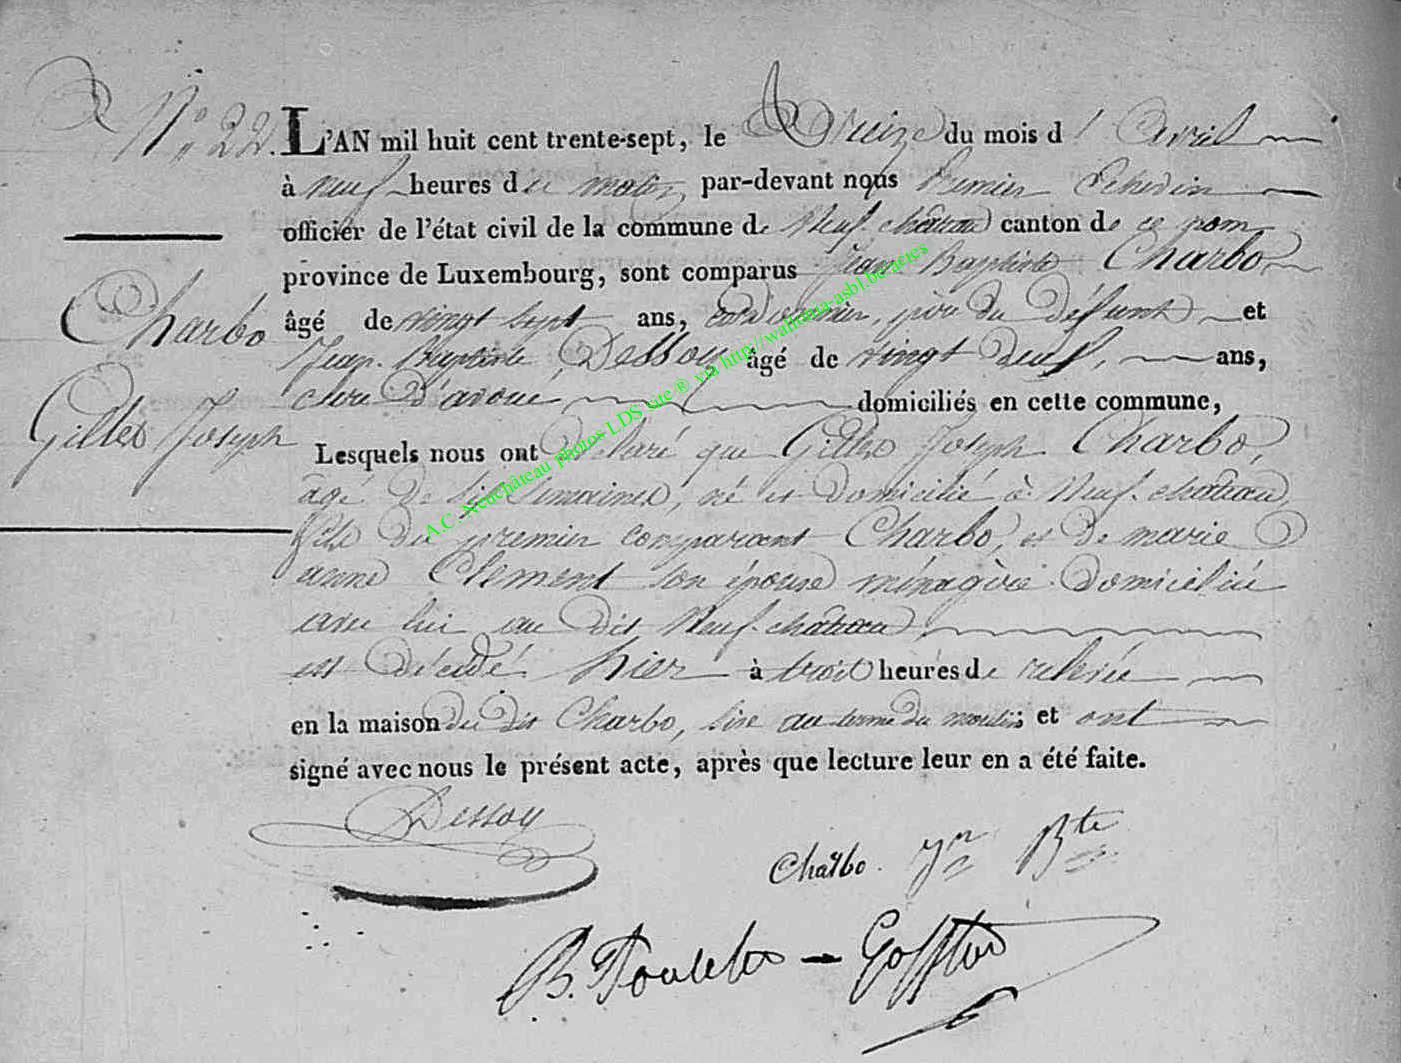 N° 22.
L'AN mil huit cent trente-sept, le treize du mois d'avril
à neuf heures du matin par-devant nous Premier Echevin
officier de l'état civil de la commune de Neufchâteau canton de ce nom
province de Luxembourg, sont comparus Jean Baptiste Charbo
âgé de vingt sept ans, cordonnier, père du défunt et
Jean Baptiste Dessoy âgé de vingt neuf, ans,
clerc d'avoué, domiciliés en cette commune,
Lesquels nous ont déclaré que Gilles Joseph Charbo,
âgé de semaines, né et domicilié à Neufchâteau,
fils du premier comparant Charbo, et de marie
anne Clement son épouse ménagère domiciliée
avec lui au dit Neufchâteau,
est décédé hier à trois heures de relevée
en la maison du dit Charbo, sise au du moulin; et ont
signé avec nous le présent acte, après que lecture leur en a été faite.
Charbo
Gilles Joseph
Dessoy
Charbo. Jn Bte
A.C. Neuchâteau photos LDS site ® via http://wallonia-asbl.be/actes